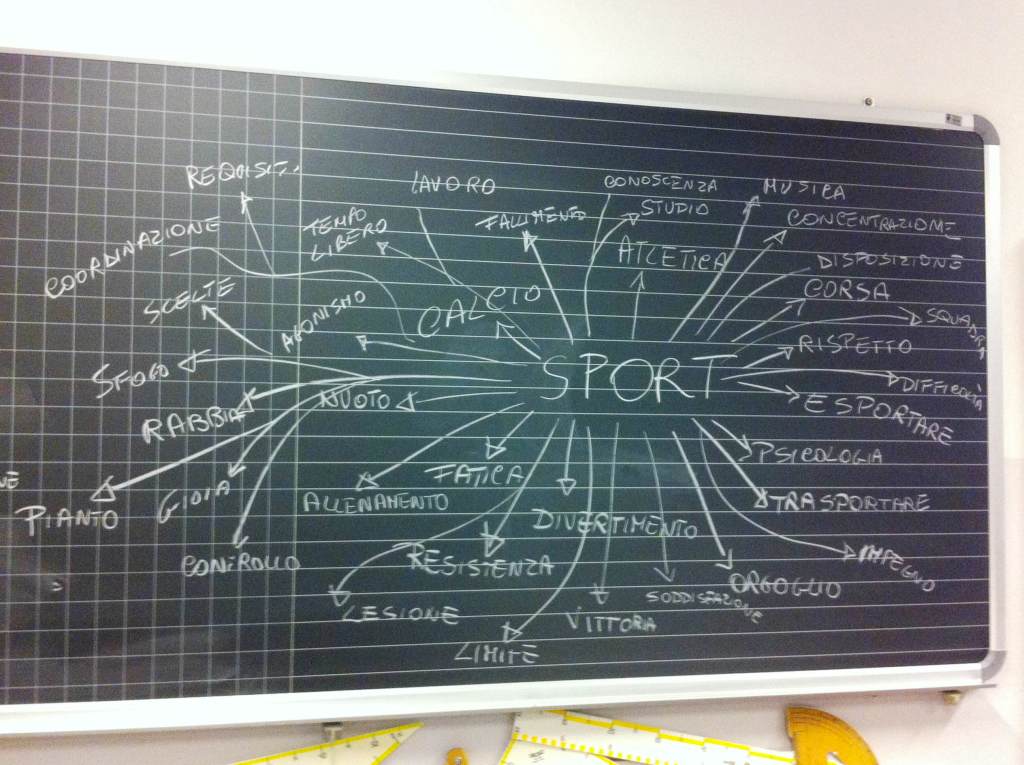 REQUISITI
LAVORO
CONOSCENZA
MUSICA
COORDINAZIONE
TEMPO
LIBERO
FALLIMENTO
STUDIO
CONCENTRAZIONE
ATLETICA
DISPOSIZIONE
SCELTE
AGONISMO
CALCIO
CORSA
SQUADRA
SFOGO
SPORT
RISPETTO
DIFFICOLTÀ
RABBIA
NUOTO
ESPORTARE
FATICA
PSICOLOGIA
PIANTO
GIOIA
ALLENAMENTO
DIVERTIMENTO
TRASPORTARE
CONTROLLO
RESISTENZA
IMPEGNO
LESIONE
ORGOGLIO
SODDISFAZIONE
VITTORIA
LIMITE